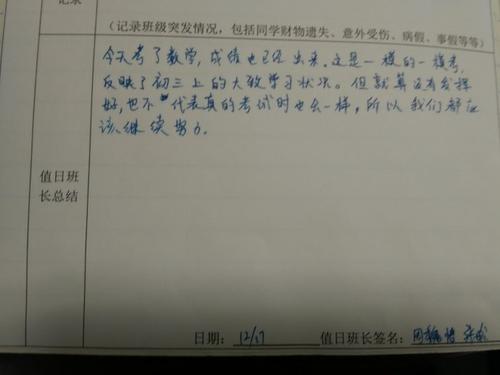 记录
(记录班级突发情况，包括同学财物遗失、意外受伤、病假、事假等等)
今天考了数学，成绩也已经出来。这是一模的一模考，
反映了初三上的大致学习状况。但就算没有发挥
好，也不代表真的考试时也会一样，所以我们都应
该继续努力。
值日班
长总结
日期：12/17 值日班长签名：